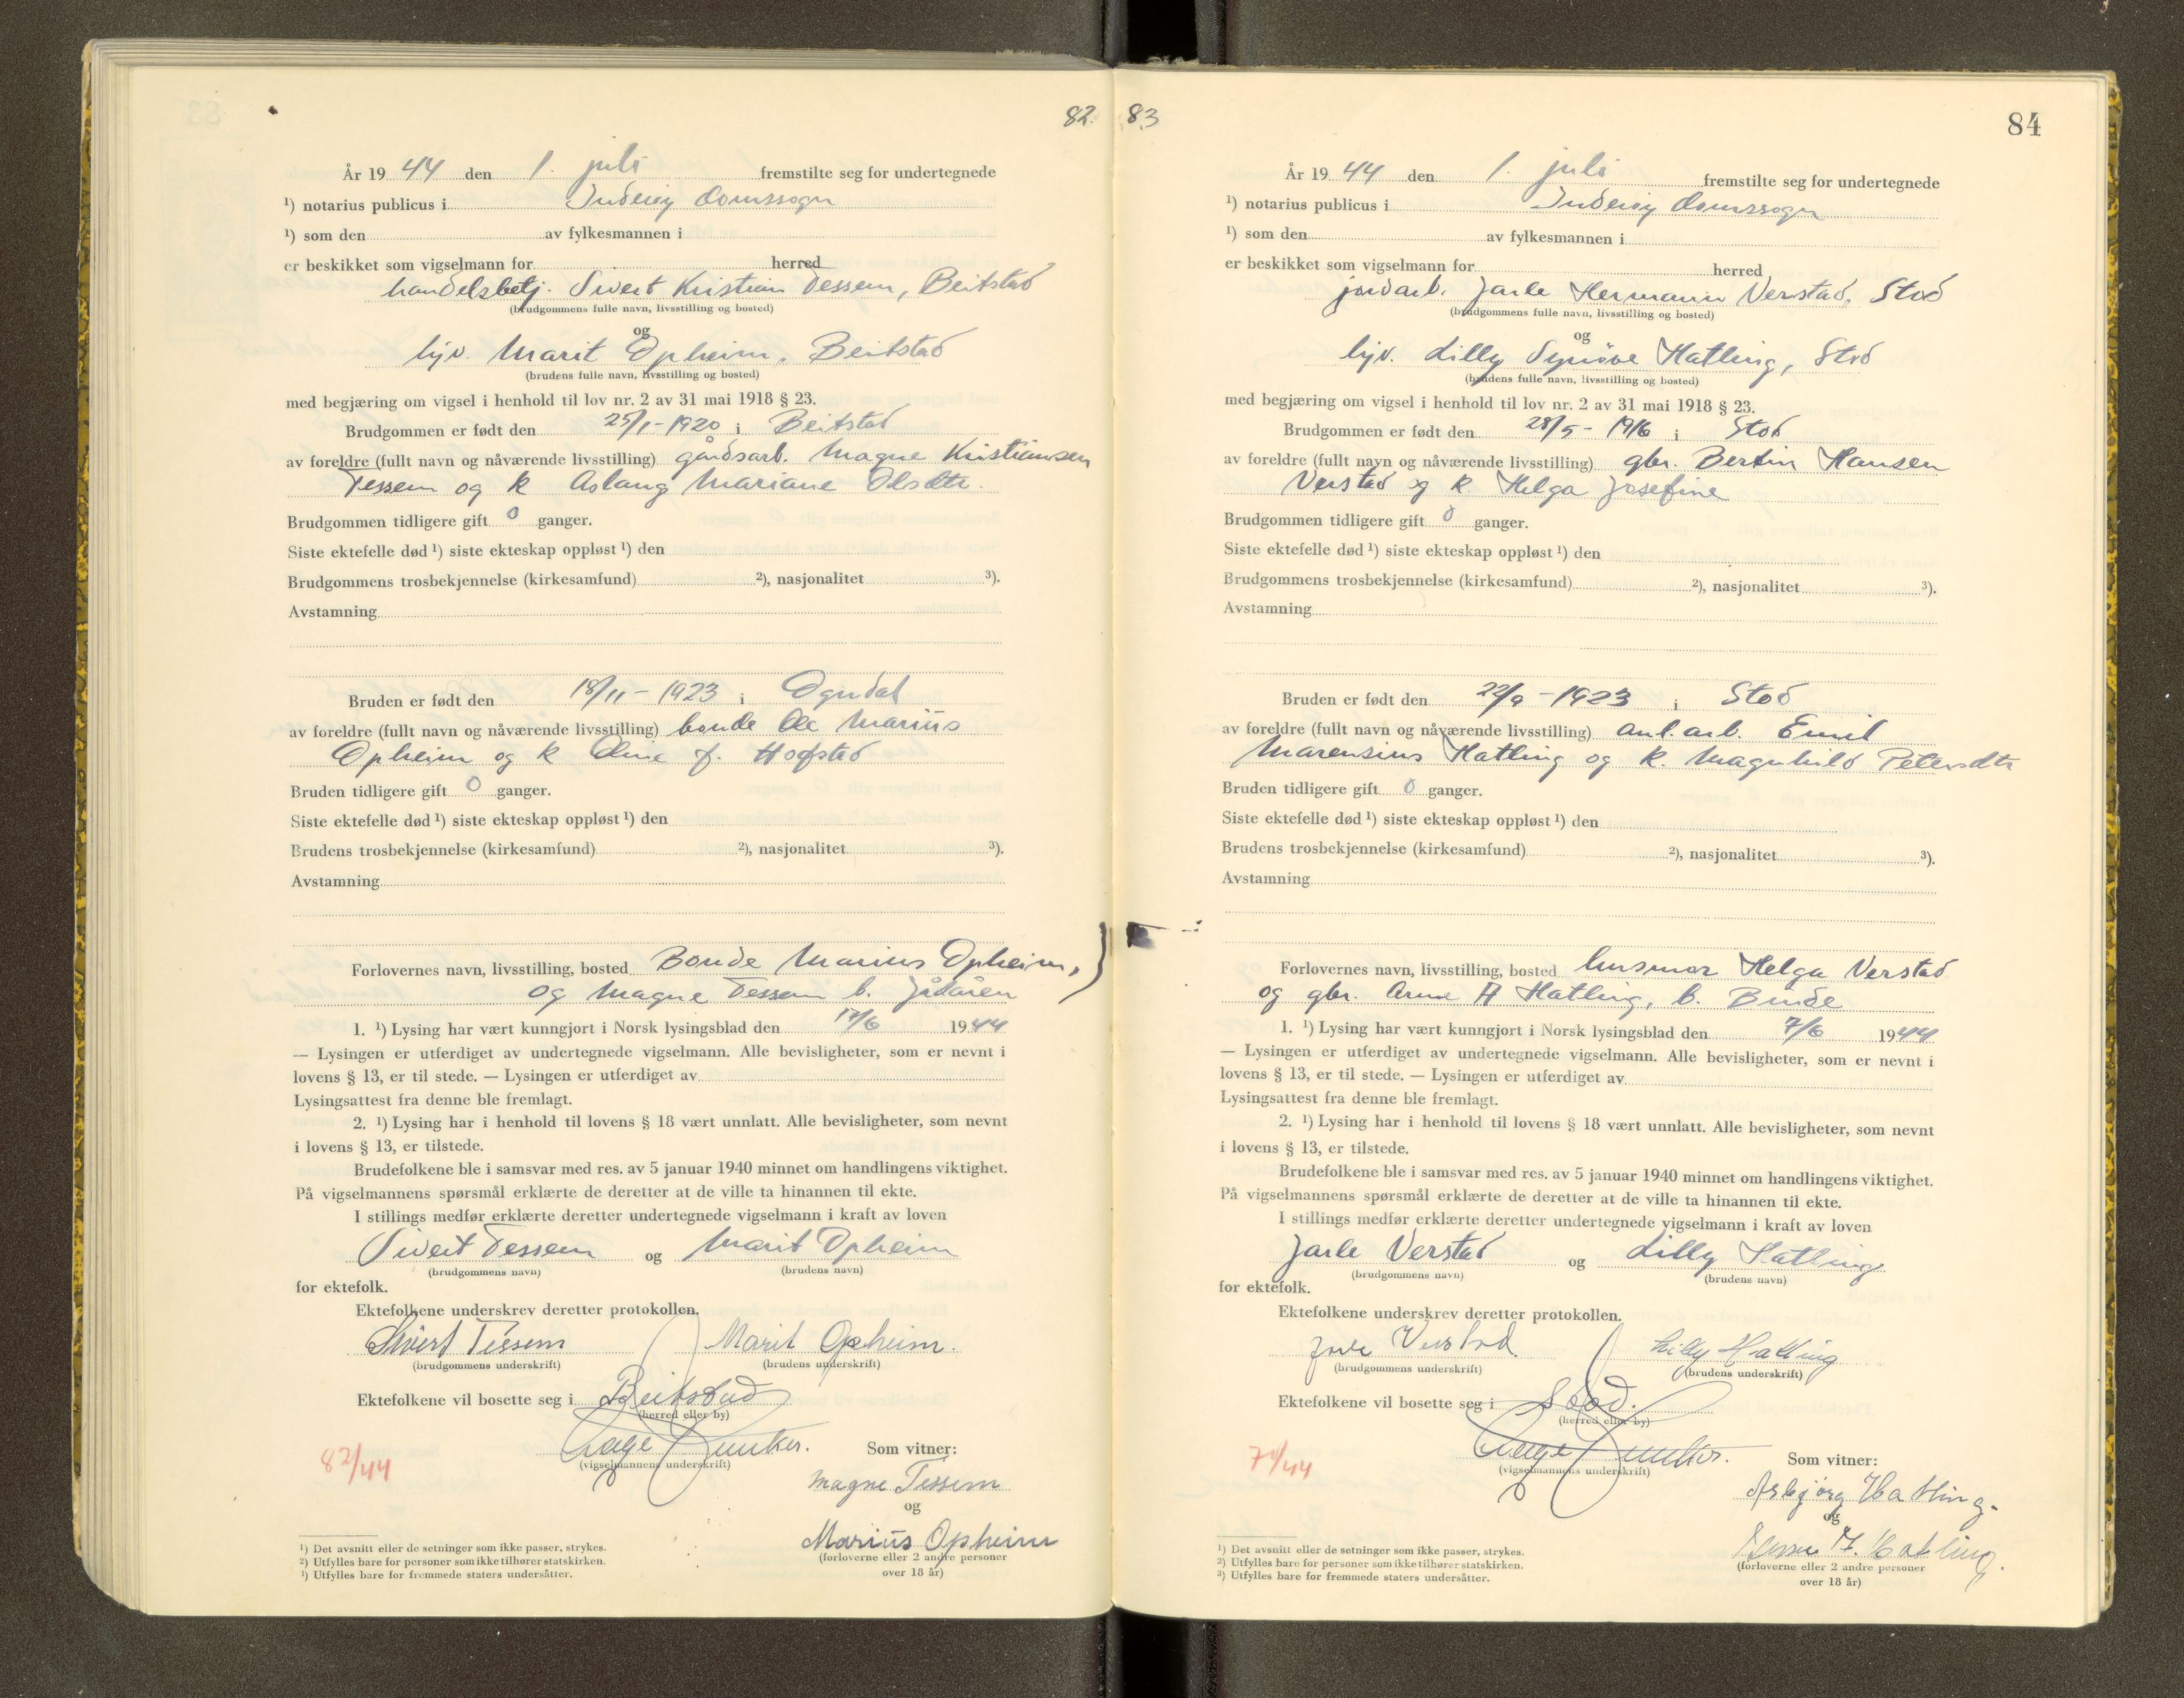 82.
År 1944 den 1. juli fremstilte seg for undertegnede
¹) notarius publicus i Inderøy domssogn
¹) som den av fylkesmannen i
er beskikket som vigselmann for herred
handelsbetj. Sivert Kristian Tessem, Beitstad
(brudgommens fulle navn, livsstilling og bosted)
og
hjv. Marit Opheim, Beitstad
(brudens fulle navn, livsstilling og bosted)
med begjæring om vigsel i henhold til lov nr. 2 av 31 mai 1918 § 23.
Brudgommen er født den 25/1-1920 i Beitstad
av foreldre (fullt navn og nåværende livsstilling) gårdsarb. Magne Kristiansen
Tessem og k Aslaug Mariane Olsdtr.
Brudgommen tidligere gift 0 ganger.
Siste ektefelle død ¹) siste ekteskap oppløst ¹) den
Brudgommens trosbekjennelse (kirkesamfund) ²), nasjonalitet ³).
Avstamning
Bruden er født den 18/11-1923 i Ogndal
av foreldre (fullt navn og nåværende livsstilling) bonde Ole Marius
Opheim og k Oline f. Hofstad
Bruden tidligere gift 0 ganger.
Siste ektefelle død ¹) siste ekteskap oppløst ¹) den
Brudens trosbekjennelse (kirkesamfund) ²), nasjonalitet ³).
Avstamning
Forlovernes navn, livsstilling, bosted Bonde Marius Opheim,
og Magne Tessem b. Jådåren
1. ¹) Lysing har vært kunngjort i Norsk lysingsblad den 17/6 1944
— Lysingen er utferdiget av undertegnede vigselmann. Alle bevisligheter, som er nevnt i
lovens § 13, er til stede. — Lysingen er utferdiget av
Lysingsattest fra denne ble fremlagt.
2. ¹) Lysing har i henhold til lovens § 18 vært unnlatt. Alle bevisligheter, som nevnt
i lovens § 13, er tilstede.
Brudefolkene ble i samsvar med res. av 5 januar 1940 minnet om handlingens viktighet.
På vigselmannens spørsmål erklærte de deretter at de ville ta hinannen til ekte.
I stillings medfør erklærte deretter undertegnede vigselmann i kraft av loven
Sivert Tessem og Marit Opheim
(brudgommens navn) (brudens navn)
for ektefolk.
Ektefolkene underskrev deretter protokollen.
Sivert Tessem Marit Opheim.
(brudgommens underskrift) (brudens underskrift)
Ektefolkene vil bosette seg i Beitstad
(herred eller by)
Aage Junker.
(vigselmannens underskrift)
82/44
Som vitner:
Magne Tessem
og
Marius Opheim
(forloverne eller 2 andre personer
over 18 år)
¹) Det avsnitt eller de setninger som ikke passer, strykes.
²) Utfylles bare for personer som ikke tilhører statskirken.
³) Utfylles bare for fremmede staters undersåtter.
83
84
År 1944 den 1. juli fremstilte seg for undertegnede
¹) notarius publicus i Inderøy domssogn
¹) som den av fylkesmannen i
er beskikket som vigselmann for herred
jordarb. Jarle Hermann Verstad, Stod
(brudgommens fulle navn, livsstilling og bosted)
og
hjv. Lilly Synöve Hatling, Stod
(brudens fulle navn, livsstilling og bosted)
med begjæring om vigsel i henhold til lov nr. 2 av 31 mai 1918 § 23.
Brudgommen er født den 28/5-1916 i Stod
av foreldre (fullt navn og nåværende livsstilling) gbr. Bertin Hansen
Verstad og k. Helga Josefine
Brudgommen tidligere gift 0 ganger.
Siste ektefelle død ¹) siste ekteskap oppløst ¹) den
Brudgommens trosbekjennelse (kirkesamfund) ²), nasjonalitet ³).
Avstamning
Bruden er født den 22/9-1923 i Stod
av foreldre (fullt navn og nåværende livsstilling) anl.arb. Emil
Marensius Hatling og k. Magnhild Petersdtr
Bruden tidligere gift 0 ganger.
Siste ektefelle død ¹) siste ekteskap oppløst ¹) den
Brudens trosbekjennelse (kirkesamfund) ²), nasjonalitet ³).
Avstamning
Forlovernes navn, livsstilling, bosted husmor Helga Verstad
og gbr. Arne H Hatling, b. Binde
1. ¹) Lysing har vært kunngjort i Norsk lysingsblad den 7/6 1944
— Lysingen er utferdiget av undertegnede vigselmann. Alle bevisligheter, som er nevnt i
lovens § 13, er til stede. — Lysingen er utferdiget av
Lysingsattest fra denne ble fremlagt.
2. ¹) Lysing har i henhold til lovens § 18 vært unnlatt. Alle bevisligheter, som nevnt
i lovens § 13, er tilstede.
Brudefolkene ble i samsvar med res. av 5 januar 1940 minnet om handlingens viktighet.
På vigselmannens spørsmål erklærte de deretter at de ville ta hinannen til ekte.
I stillings medfør erklærte deretter undertegnede vigselmann i kraft av loven
Jarle Verstad og Lilly Hatling
(brudgommens navn) (brudens navn)
for ektefolk.
Ektefolkene underskrev deretter protokollen.
Jarle Verstad. Lilly Hatling
(brudgommens underskrift) (brudens underskrift)
Ektefolkene vil bosette seg i Stod.
(herred eller by)
Aage Junker.
(vigselmannens underskrift)
Som vitner:
Asbjørg Hatling.
og
H. Hatling.
(forloverne eller 2 andre personer
over 18 år)
¹) Det avsnitt eller de setninger som ikke passer, strykes.
²) Utfylles bare for personer som ikke tilhører statskirken.
³) Utfylles bare for fremmede staters undersåtter.